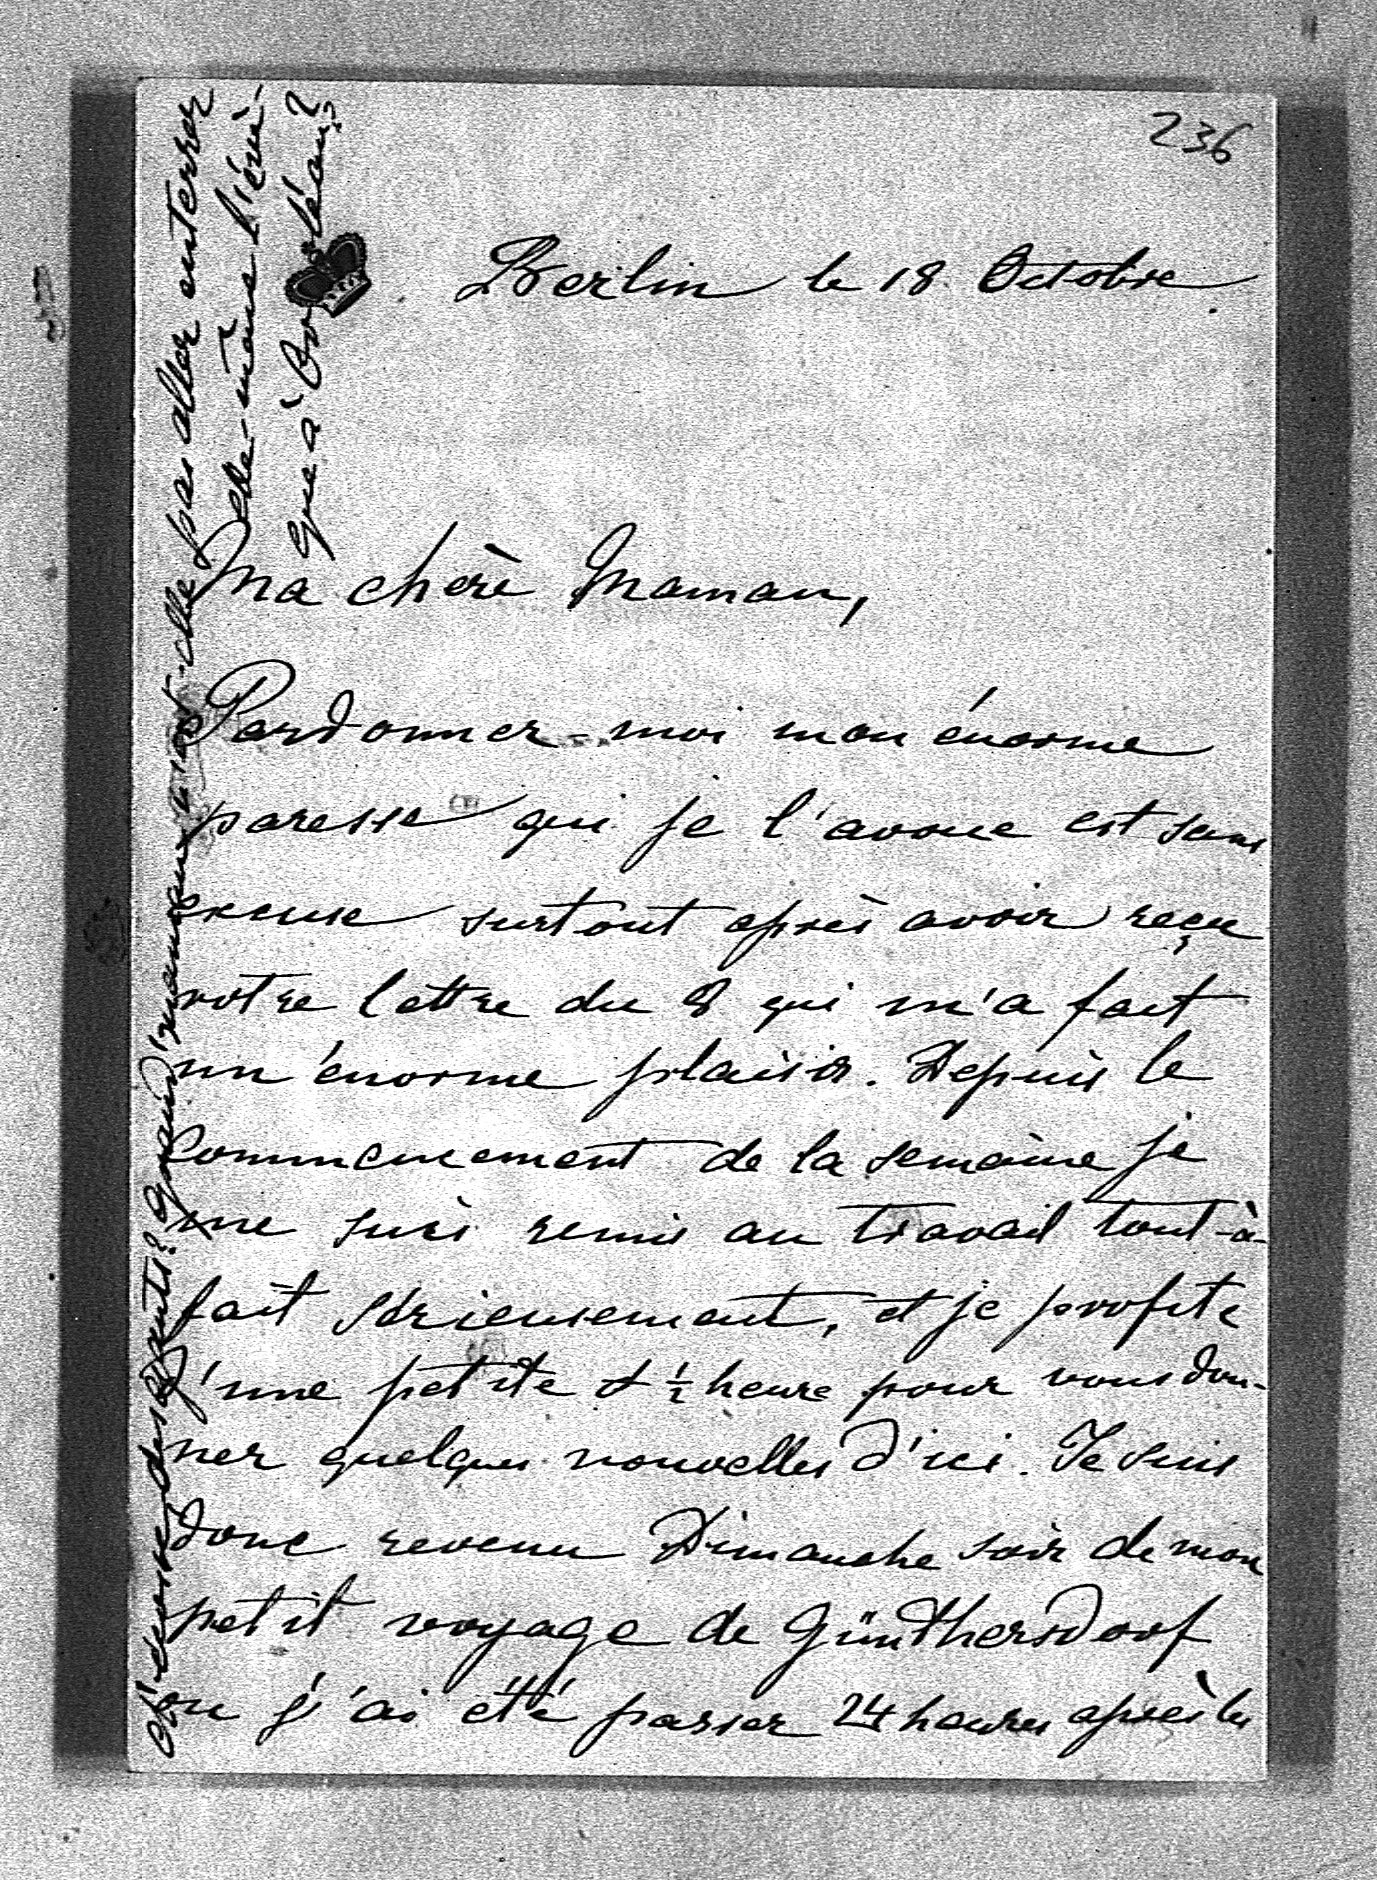 236
Berlin le 18. Octobre
Ma chère Maman,
Pardonner-moi mon énorme
paresse qui je l'avoue est sans
excuse surtout après avoir reçu
votre lettre du 8 qui m'a fait
un énorme plaisir. Depuis le
commencement de la semaine je
me suis remis au travail tout-à-
fait sérieusement, et je profite
d'une petite ½ heure pour vous don-
ner quelques nouvelles d'ici. Je suis
donc revenu Dimanche soir de mon
petit voyage de Günthersdorf
ou j'ai été passer 24 heures après les
pas aller enterrer
elle-même l'évè-
que à